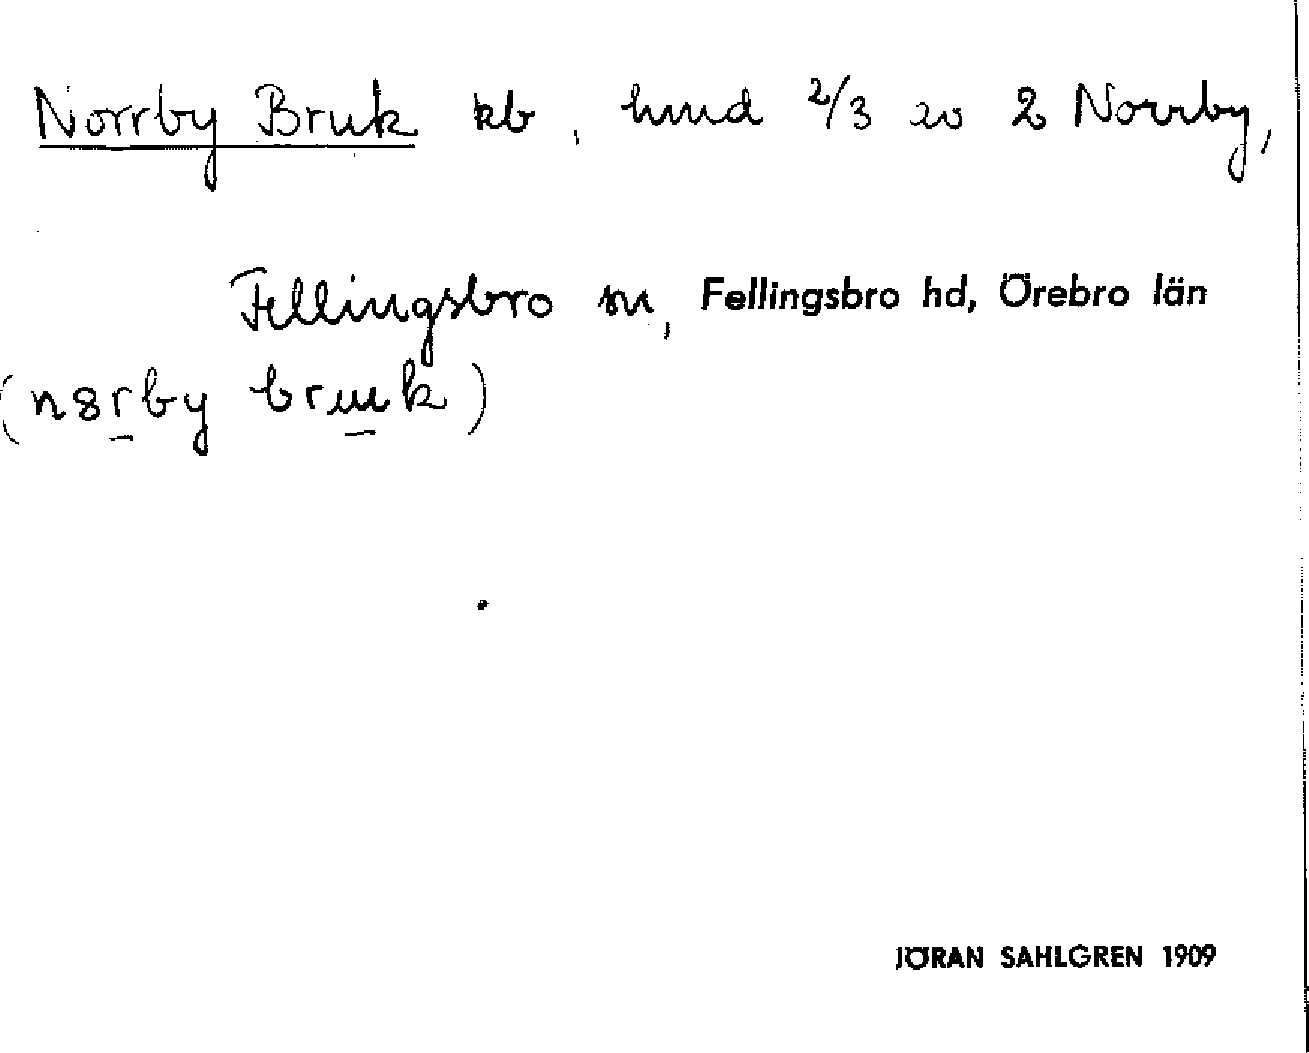 Norrby Bruk kb, hmd 2/3 av 2 Norrby,
Fellingsbro sn, Fellingsbro hd, Örebro län
(n8rby bruuk)
JÖRAN SAHLGREN 1909